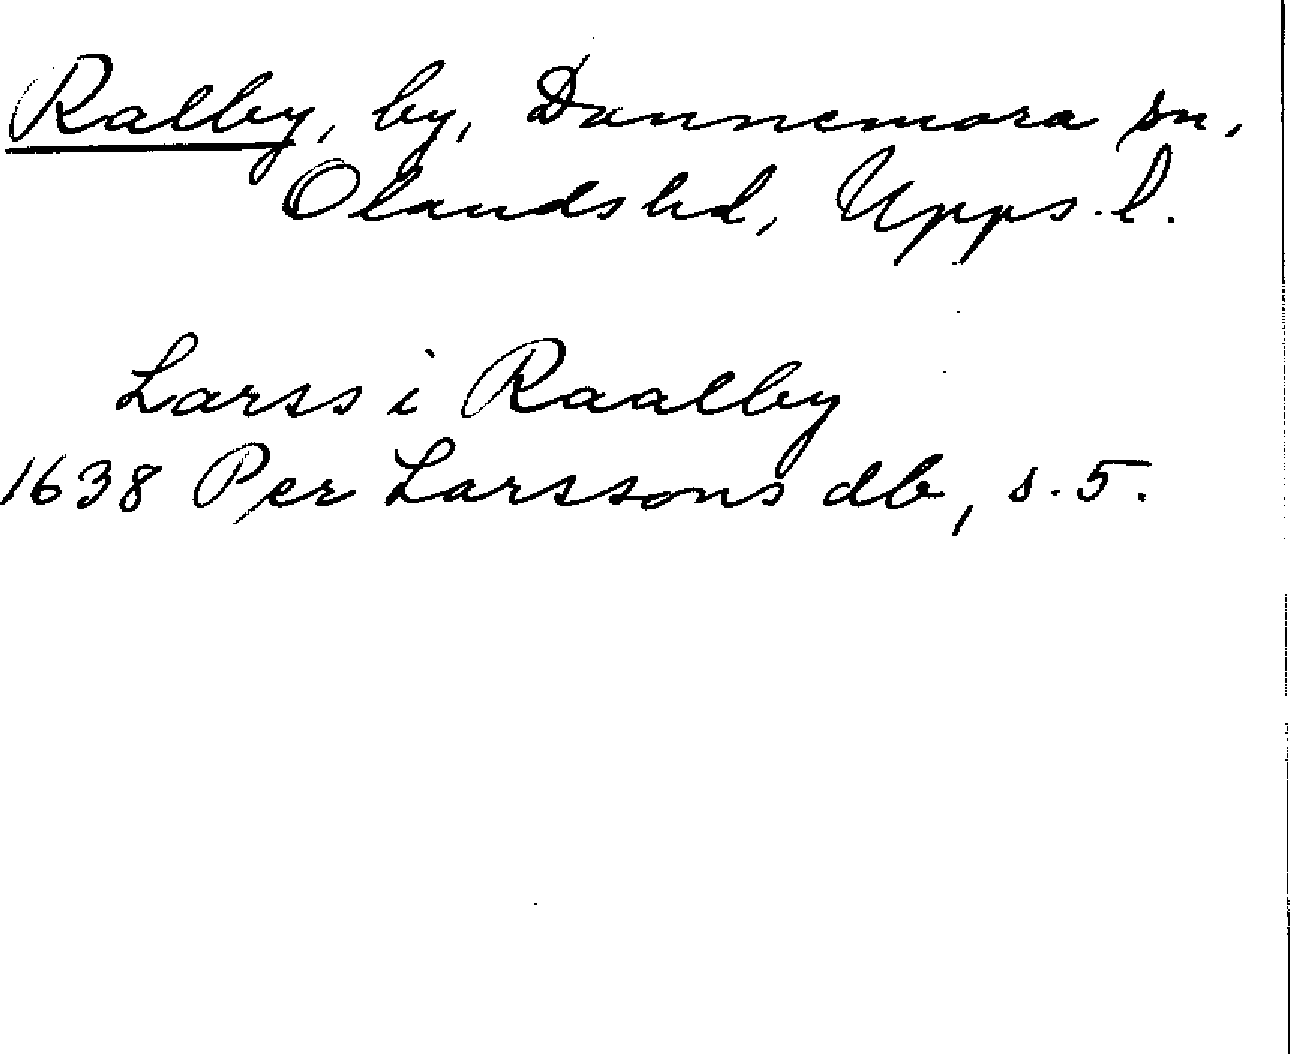 Ralby, by, Dannemora sn,
Olands hd, Upps. l.
Larss i Raalby
1638 Per Larssons db, s. 5.